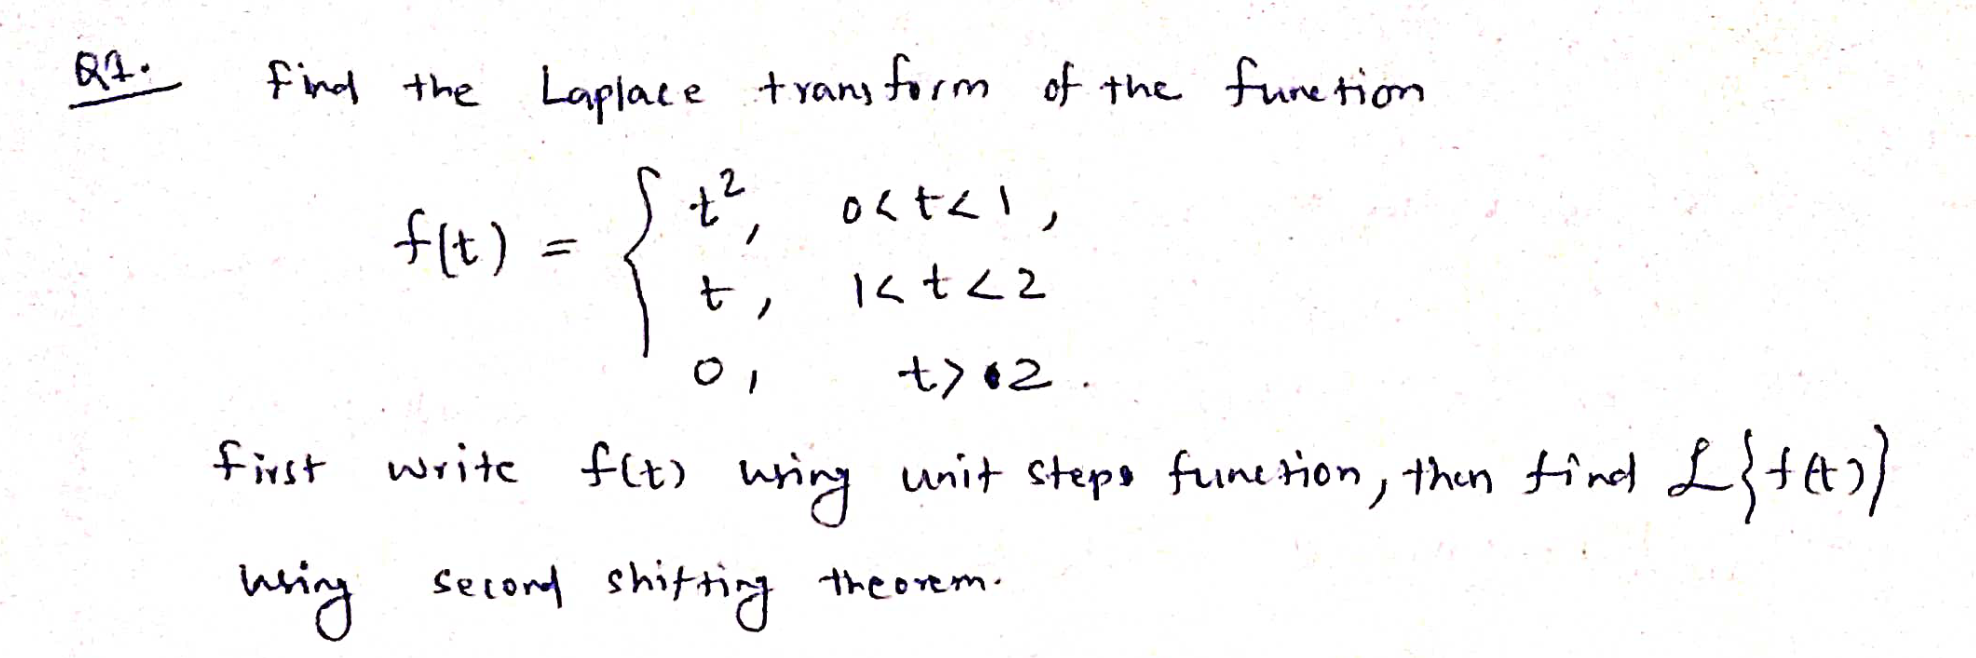 Q1. Find the Laplace transform of the function
f(t) = { t², 0<t<1,
t, 1<t<2
0, t>2.
First write f(t) using unit step function, then find ℒ{f(t)}
using second shifting theorem.